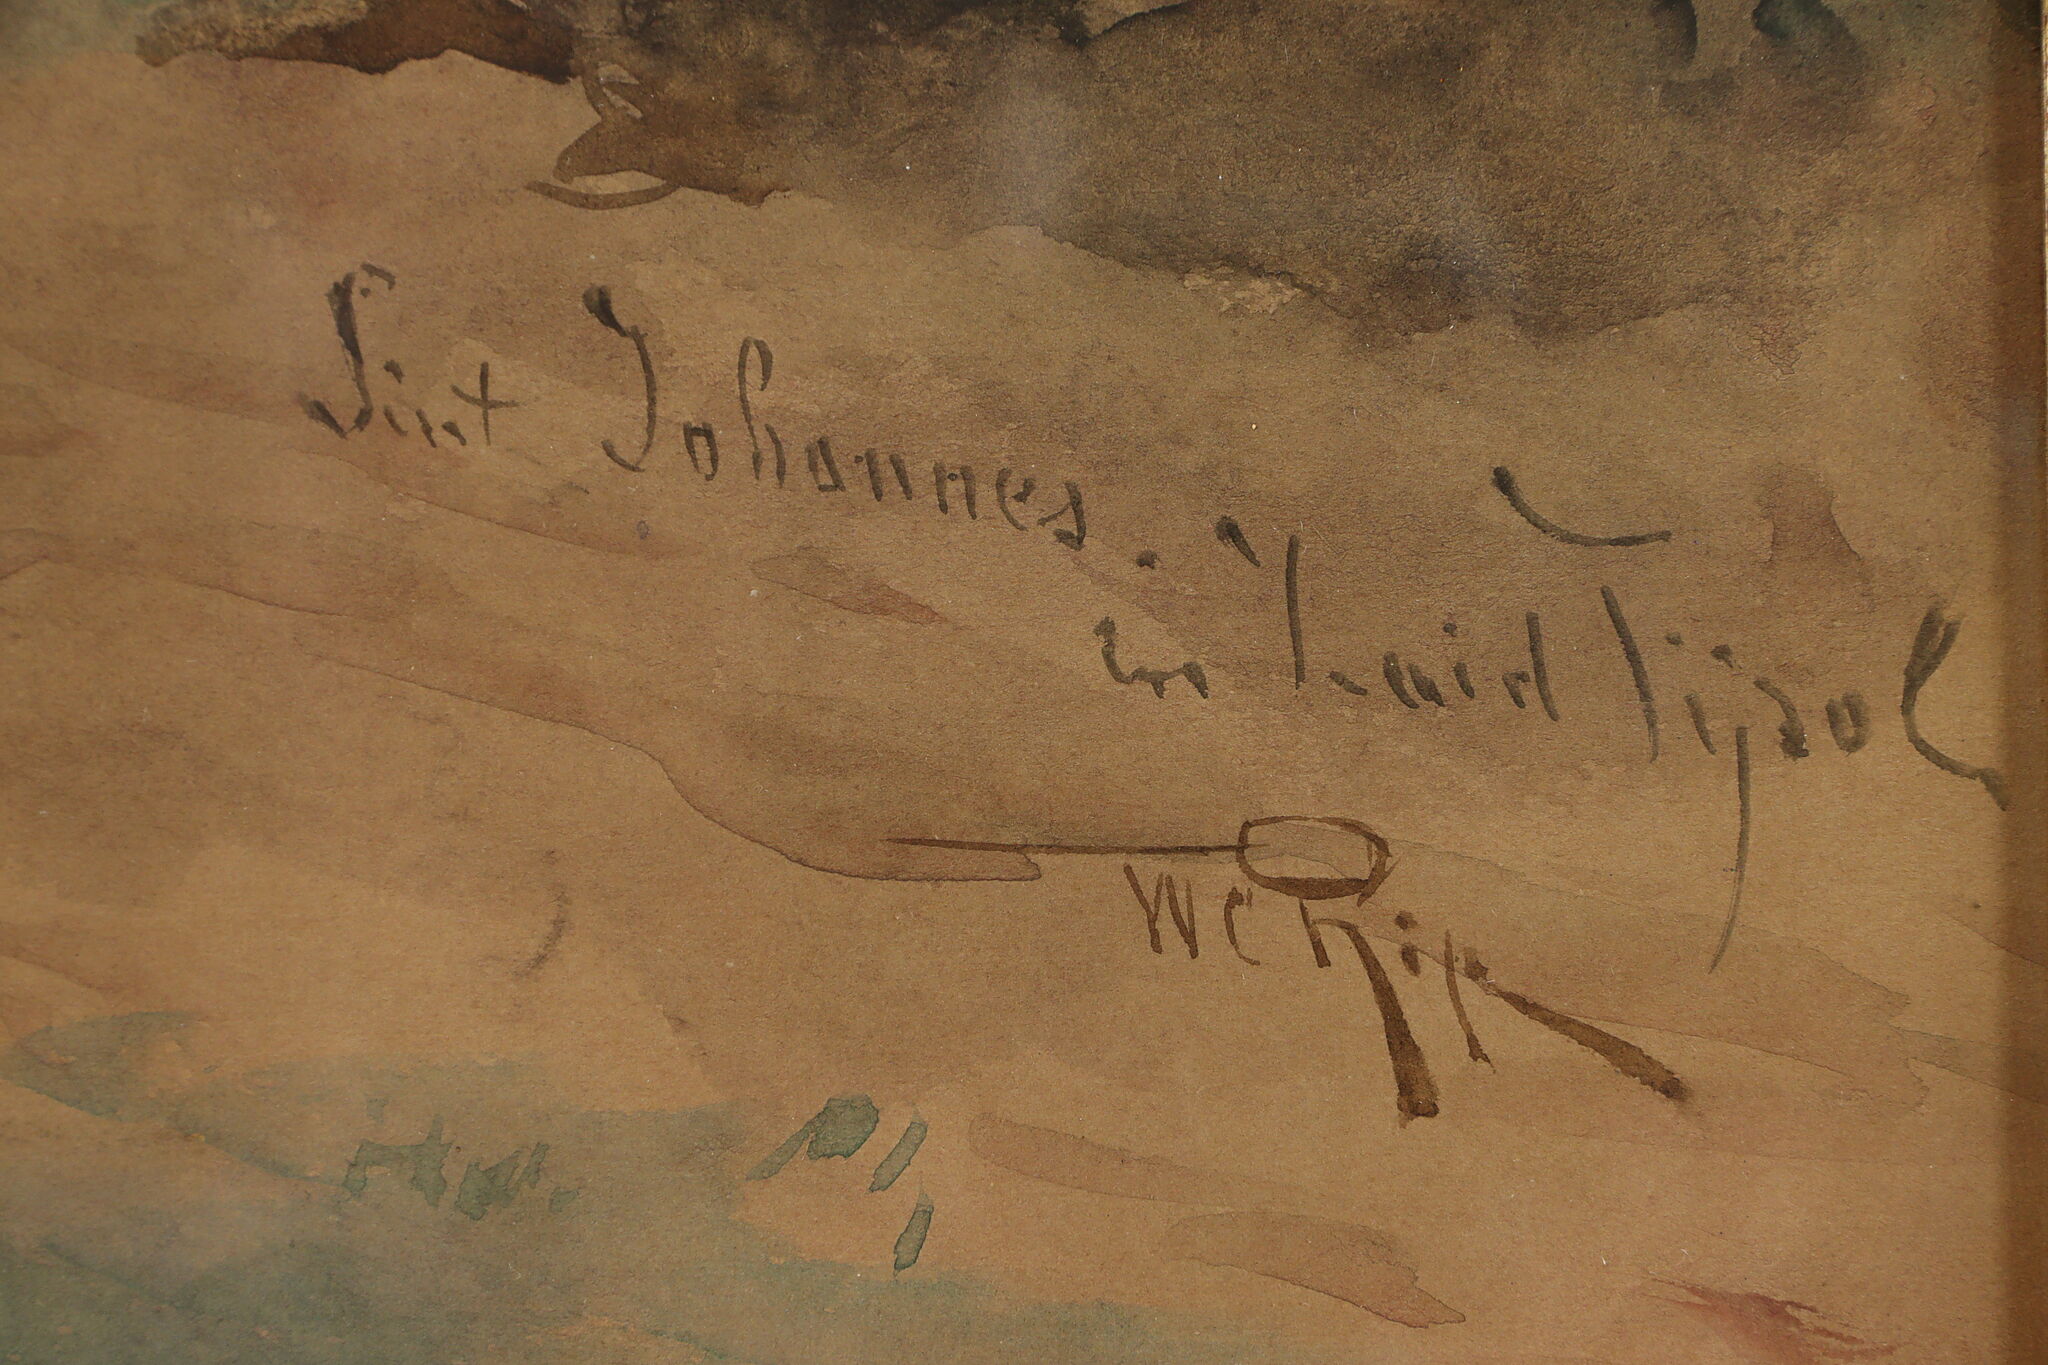 Sint Johannes.
in 't Zuid Tijrol
WC Rip